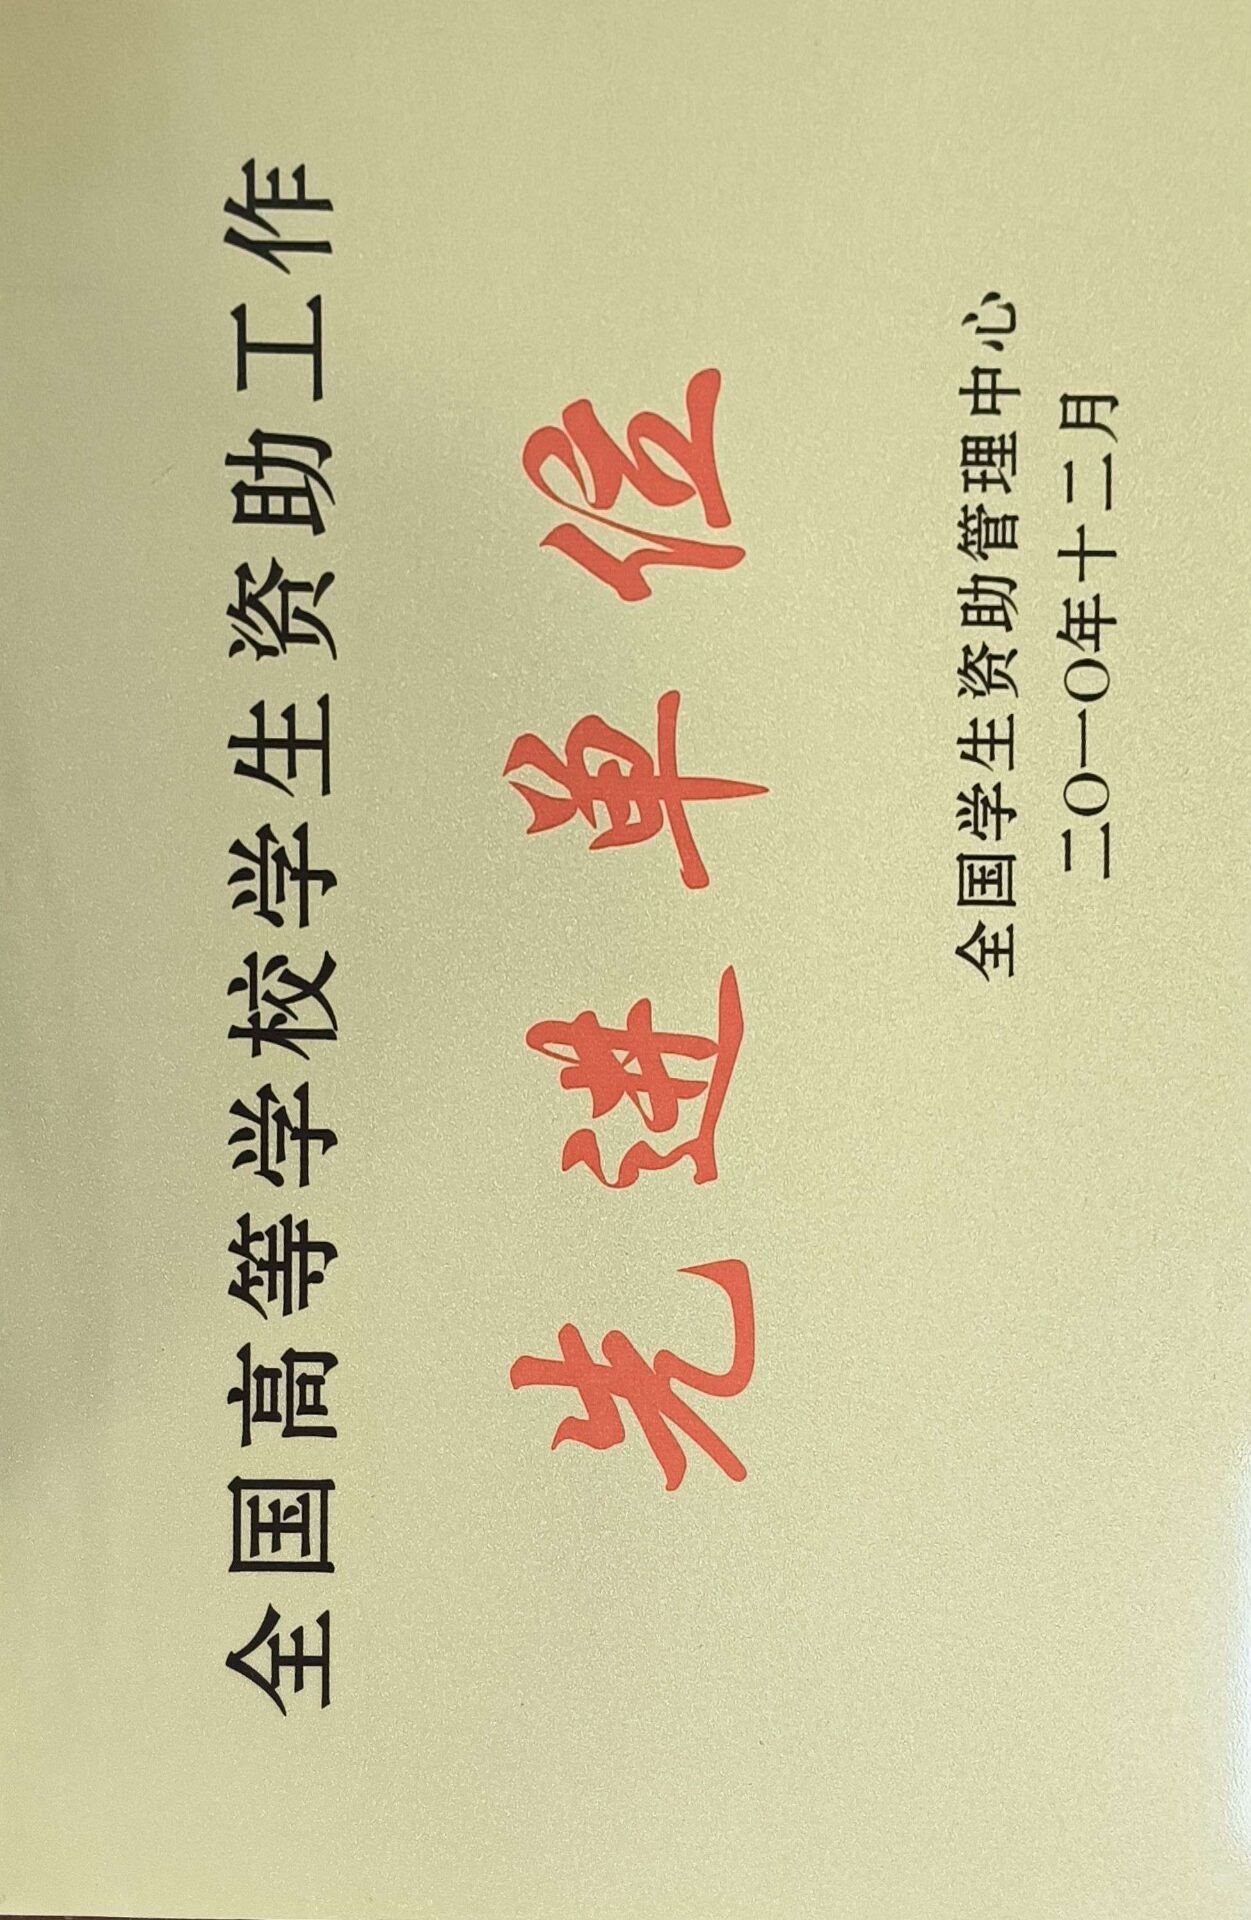 全国高等学校学生资助工作
先进单位
全国学生资助管理中心
二〇一〇年十二月